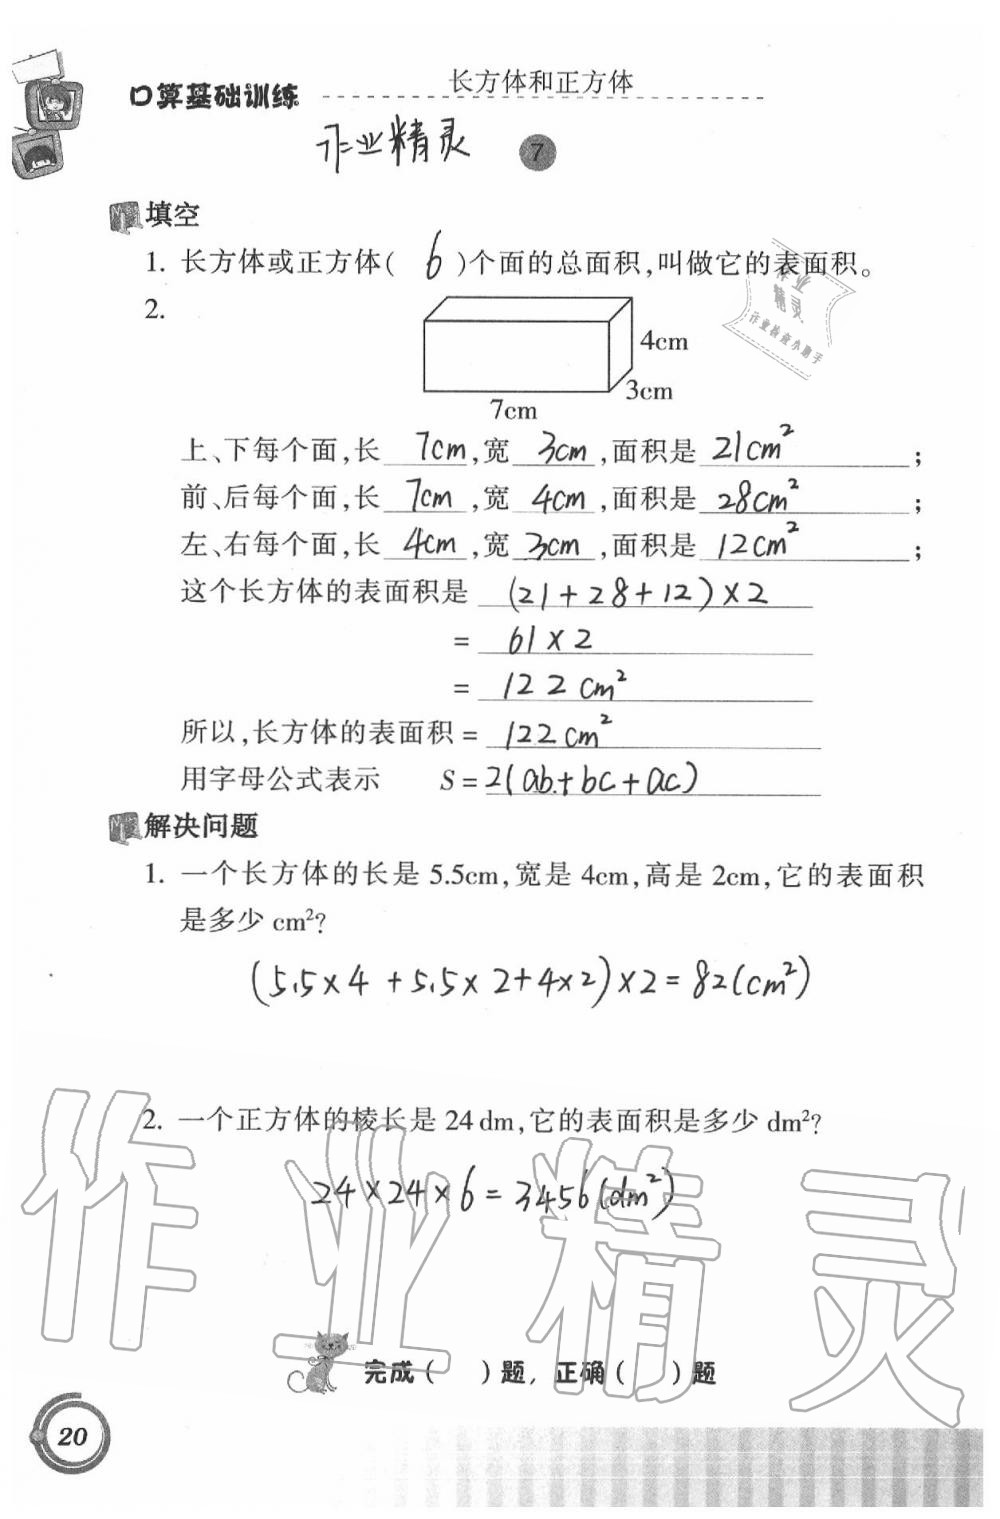 口算基础训练 长方体和正方体
作业精灵 7
填空
1. 长方体或正方体( 6 )个面的总面积,叫做它的表面积。
作业
精灵
作业检查小助手
2.
4cm
3cm
7cm
上、下每个面,长 7cm,宽 3cm,面积是 21cm²;
前、后每个面,长 7cm,宽 4cm,面积是 28cm²;
左、右每个面,长 4cm,宽 3cm,面积是 12cm²;
这个长方体的表面积是 (21+28+12)×2
= 61×2
= 122cm²
所以,长方体的表面积= 122cm²
用字母公式表示 S=2(ab+bc+ac)
解决问题
1. 一个长方体的长是 5.5cm,宽是 4cm,高是 2cm,它的表面积
是多少 cm²?
(5.5×4+5.5×2+4×2)×2=82(cm²)
2. 一个正方体的棱长是 24 dm,它的表面积是多少 dm²?
24×24×6=3456(dm²)
作业精灵
完成( )题, 正确( )题
20